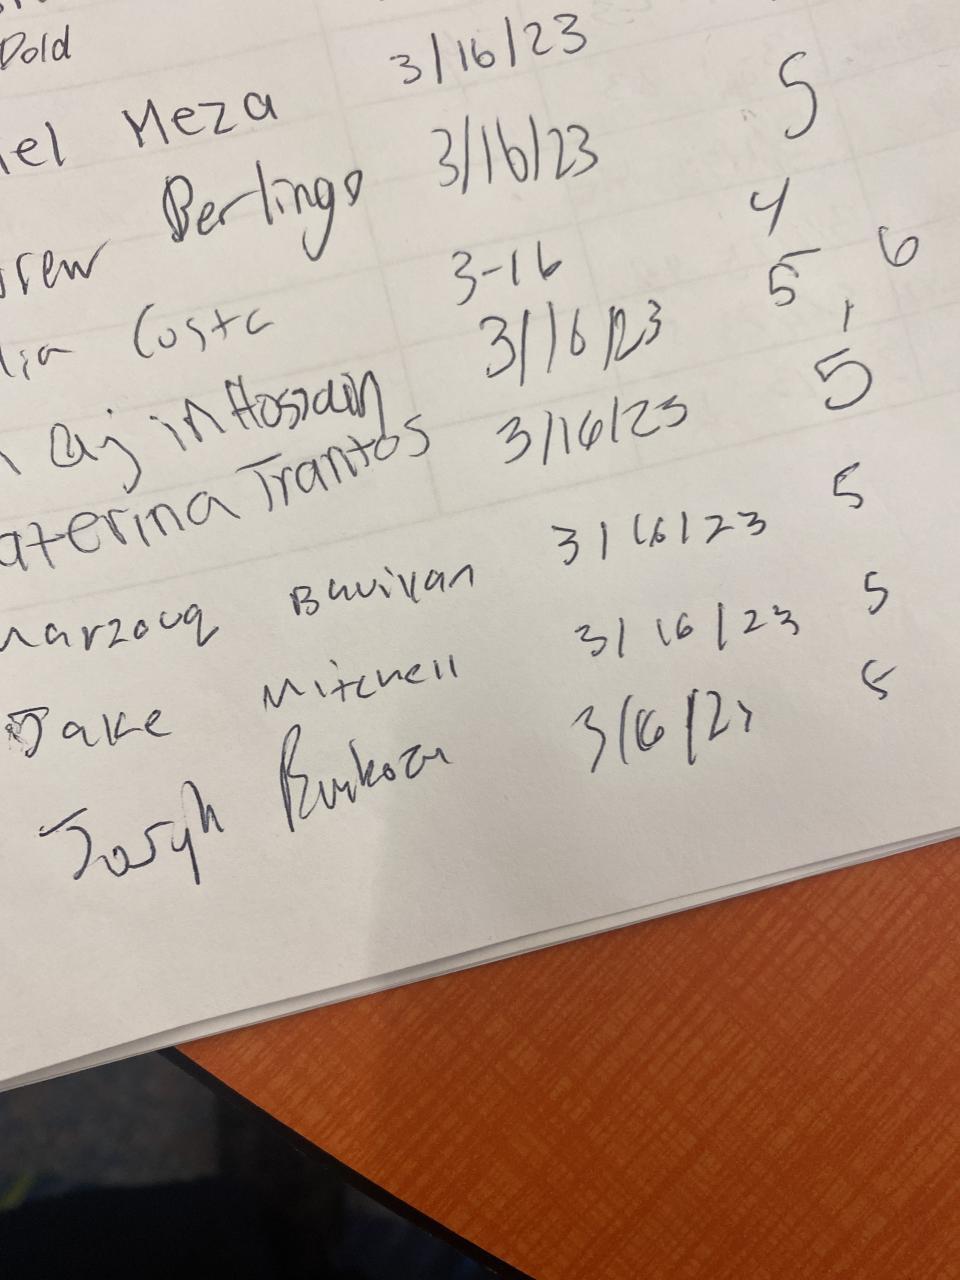 Dold
iel Meza 3/16/23
rew Berlingo 3/16/23 5
lia Costa 3-16 4
ajin Hossain 3/16/23 5, 6
aterina Trantos 3/16/23 5
marzouq Buuikan 3/16/23 5
Jake Mitchell 3/16/23 5
Joseph 3/16/23 5